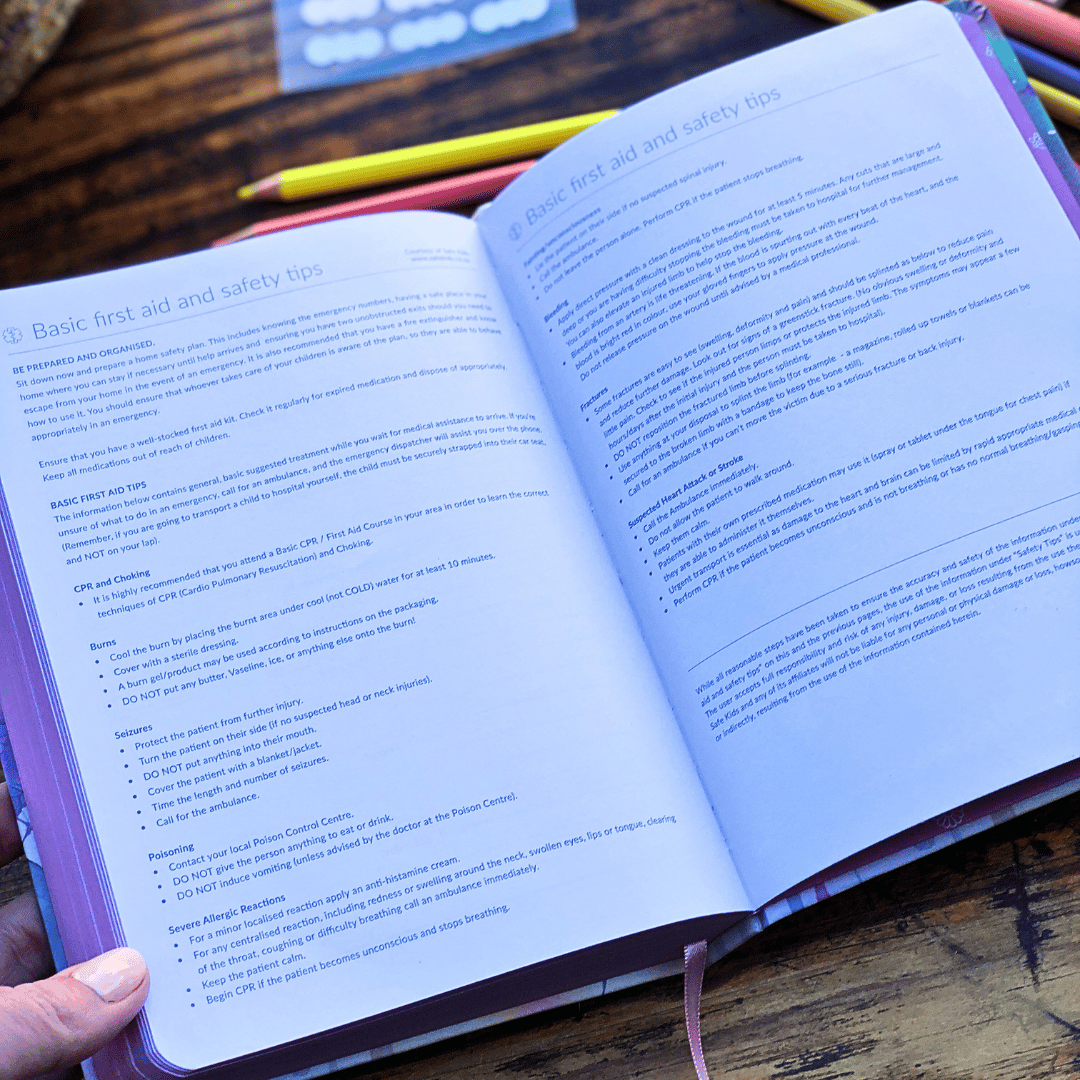 Basic first aid and safety tips
BE PREPARED AND ORGANISED.
Sit down now and prepare a home safety plan. This includes knowing the emergency numbers, having a safe place in your
home where you can stay if necessary until help arrives and ensuring you have two unobstructed exits should you need to
escape from your home in the event of an emergency. It is also recommended that you have a fire extinguisher and know
how to use it. You should ensure that whoever takes care of your children is aware of the plan, so they are able to behave
appropriately in an emergency.
Ensure that you have a well-stocked first aid kit. Check it regularly for expired medication and dispose of appropriately.
Keep all medications out of reach of children.
BASIC FIRST AID TIPS
The information below contains general, basic suggested treatment while you wait for medical assistance to arrive. If you're
unsure of what to do in an emergency, call for an ambulance, and the emergency dispatcher will assist you over the phone.
(Remember, if you are going to transport a child to hospital yourself, the child must be securely strapped into their car seat,
and NOT on your lap).
CPR and Choking
• It is highly recommended that you attend a Basic CPR / First Aid Course in your area in order to learn the correct
techniques of CPR (Cardio Pulmonary Resuscitation) and Choking.
Burns
• Cool the burn by placing the burnt area under cool (not COLD) water for at least 10 minutes.
• Cover with a sterile dressing.
• A burn gel/product may be used according to instructions on the packaging.
• DO NOT put any butter, Vaseline, ice, or anything else onto the burn!
Seizures
• Protect the patient from further injury.
• Turn the patient on their side (if no suspected head or neck injuries).
• DO NOT put anything into their mouth.
• Cover the patient with a blanket/jacket.
• Time the length and number of seizures.
• Call for the ambulance.
Poisoning
• Contact your local Poison Control Centre.
• DO NOT give the person anything to eat or drink.
• DO NOT induce vomiting (unless advised by the doctor at the Poison Centre).
Severe Allergic Reactions
• For a minor localised reaction apply an anti-histamine cream.
• For any centralised reaction, including redness or swelling around the neck, swollen eyes, lips or tongue, clearing
of the throat, coughing or difficulty breathing call an ambulance immediately.
• Keep the patient calm.
• Begin CPR if the patient becomes unconscious and stops breathing.
Basic first aid and safety tips
• Lie the patient on their side if no suspected spinal injury.
• Call the ambulance.
• Do not leave the person alone. Perform CPR if the patient stops breathing.
Bleeding
• Apply direct pressure with a clean dressing to the wound for at least 5 minutes. Any cuts that are large and
deep or you are having difficulty stopping the bleeding must be taken to hospital for further management.
You can also elevate an injured limb to help stop the bleeding.
• Bleeding from an artery is life threatening. If the blood is spurting out with every beat of the heart, and the
blood is bright red in colour, use your gloved fingers to apply pressure at the wound.
Do not release pressure on the wound until advised by a medical professional.
Fractures
• Some fractures are easy to see (swelling, deformity and pain) and should be splinted as below to reduce pain
and reduce further damage. Look out for signs of a greenstick fracture. (No obvious swelling or deformity and
little pain. Check to see if the injured person limps or protects the injured limb. The symptoms may appear a few
hours/days after the initial injury and the person must be taken to hospital).
• DO NOT reposition the fractured limb before splinting.
• Use anything at your disposal to splint the limb (for example - a magazine, rolled up towels or blankets can be
secured to the broken limb with a bandage to keep the bone still).
• Call for an ambulance if you can't move the victim due to a serious fracture or back injury.
Suspected Heart Attack or Stroke
• Call the Ambulance immediately.
• Do not allow the patient to walk around.
• Keep them calm.
• Patients with their own prescribed medication may use it (spray or tablet under the tongue for chest pain) if
they are able to administer it themselves.
• Urgent transport is essential as damage to the heart and brain can be limited by rapid appropriate medical
• Perform CPR if the patient becomes unconscious and is not breathing or has no normal breathing/gasping
While all reasonable steps have been taken to ensure the accuracy and safety of the information under
aid and safety tips" on this and the previous pages, the use of the information under "Safety Tips" is
The user accepts full responsibility and risk of any injury, damage, or loss resulting from the use
Safe Kids and any of its affiliates will not be liable for any personal or physical damage or loss,
or indirectly, resulting from the use of the information contained herein.